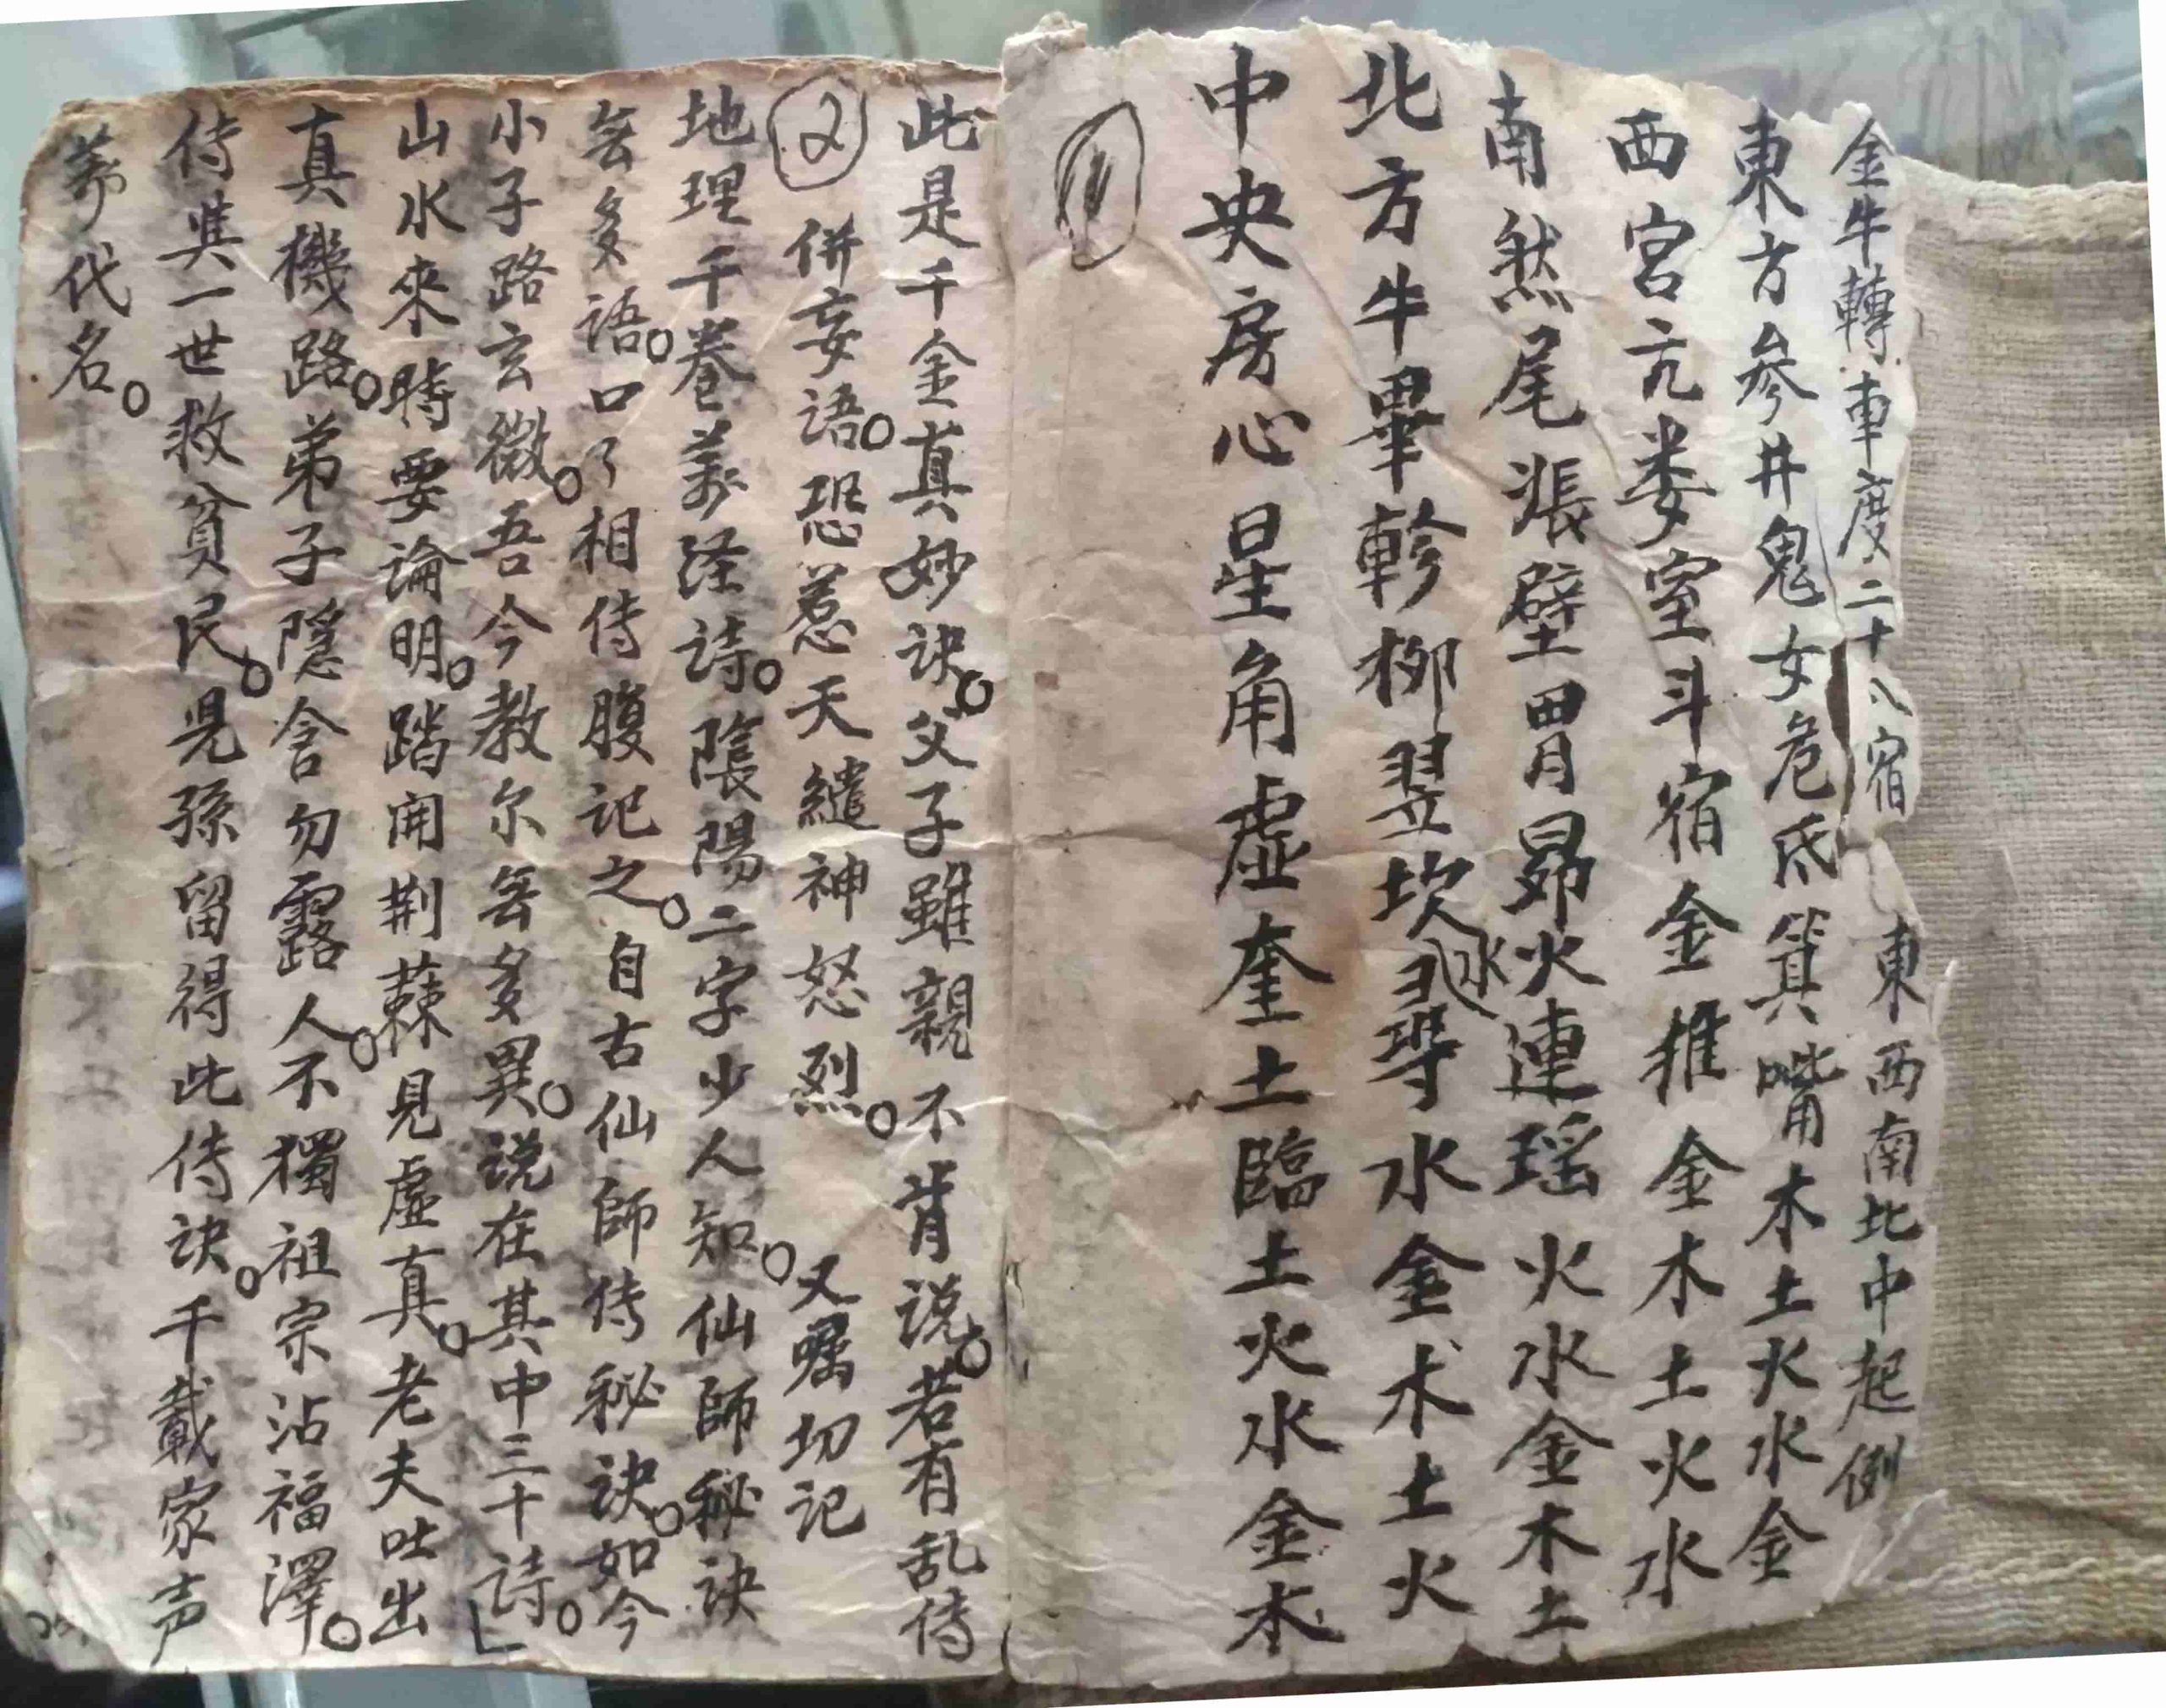 金牛轉車度二十八宿 東西南北中起例
東方參井鬼女危氐箕嘴木土火水金
西宮亢娄室斗宿金推金木土火水
南然尾漲壁胃昴火連瑶火水金木土
北方牛畢軫柳翌坎水尋水金木土火
中央房心星角虚奎土臨土火水金木
此是千金真妙诀。父子雖親不肯说。若有乱传
2 併妄语。恐惹天繾神怒烈。 又嘱切记
地理千卷萬泾诗。陰陽二字少人知。仙師秘诀
無多语。口了相传腹记之。自古仙師传秘诀。如今
小子路玄微。吾今教尔無多異。说在其中三十诗。
山水來時要論明。踏開荆蔴見虚真。老夫吐出
真機路。弟子隱含勿露人。不獨祖宗沾福澤。
传其一世救貧民。児孫留得此传诀。千載家声
萬代名。